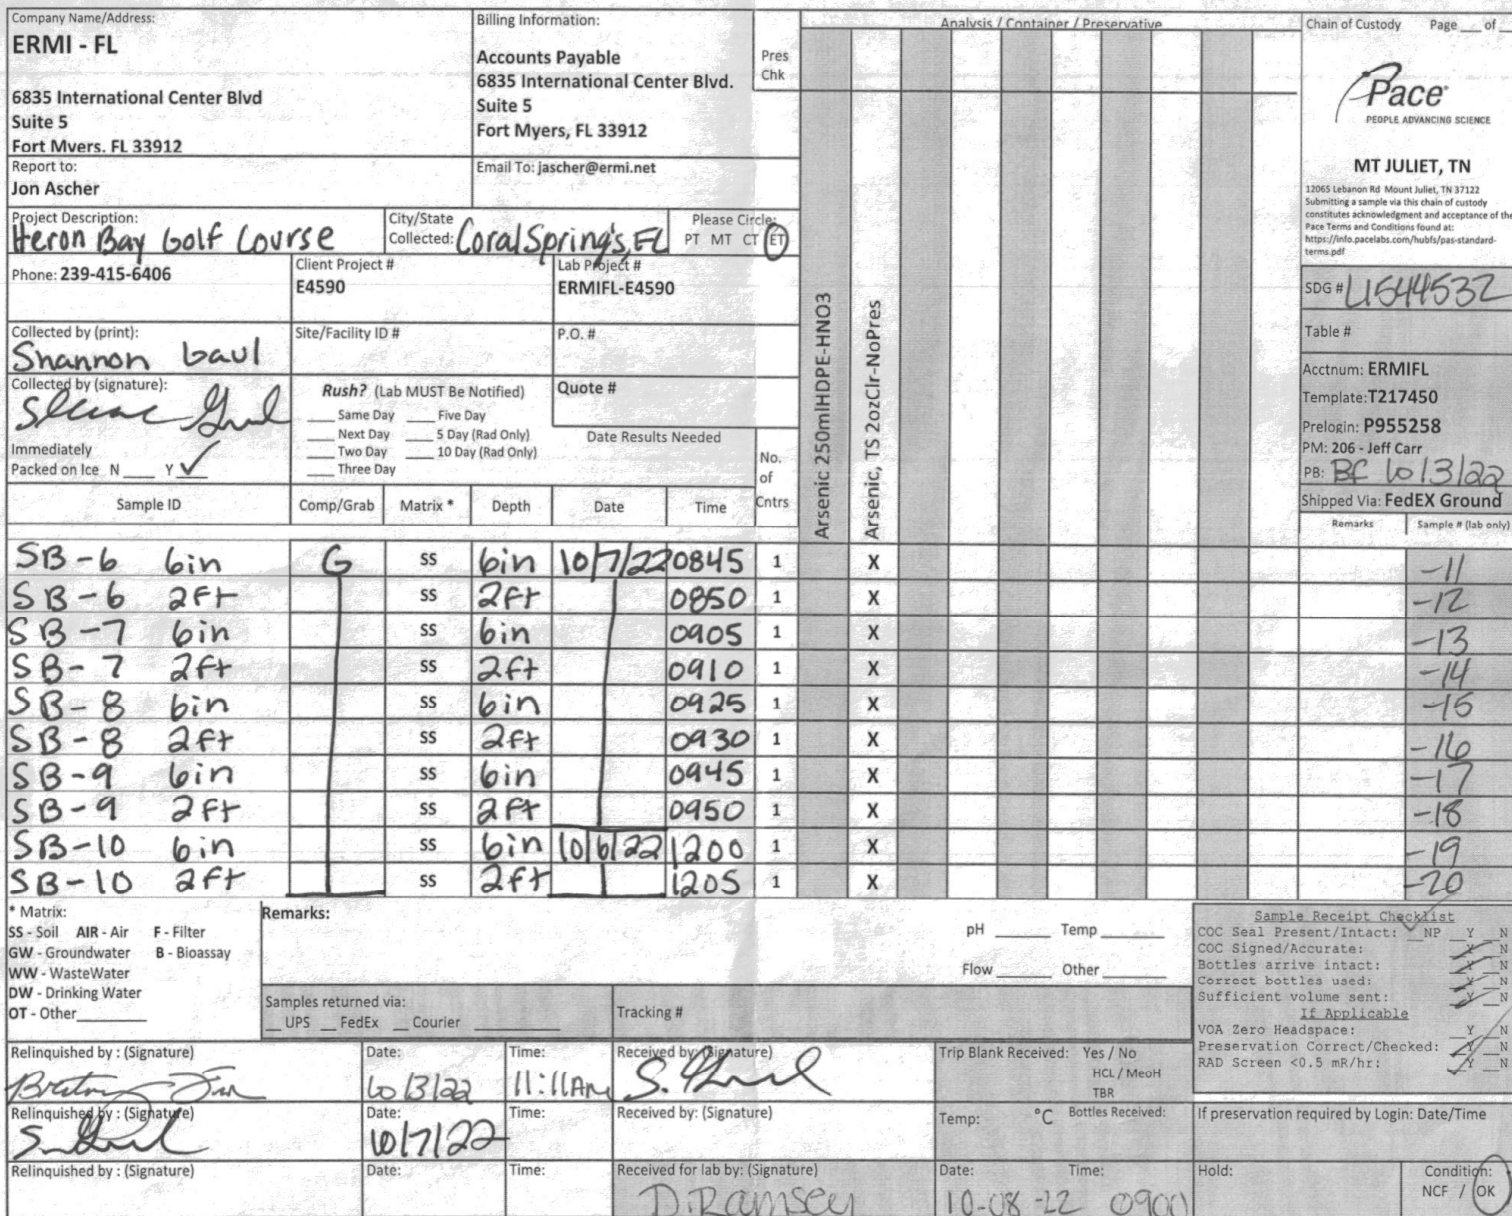 Company Name/Address:
ERMI - FL
6835 International Center Blvd
Suite 5
Fort Myers, FL 33912
Billing Information:
Accounts Payable
6835 International Center Blvd.
Suite 5
Fort Myers, FL 33912
Pres
Chk
Analysis / Container / Preservative
Chain of Custody Page ___ of __
Pace
PEOPLE ADVANCING SCIENCE
MT JULIET, TN
12065 Lebanon Rd Mount Juliet, TN 37122
Submitting a sample via this chain of custody
constitutes acknowledgment and acceptance of the
Pace Terms and Conditions found at:
https://info.pacelabs.com/hubfs/pas-standard-
terms.pdf
Report to:
Jon Ascher
Email To: jascher@ermi.net
Project Description:
Heron Bay Golf Course
City/State
Collected: Coral Springs, FL
Please Circle:
PT MT CT ET
Phone: 239-415-6406
Client Project #
E4590
Lab Project #
ERMIFL-E4590
SDG # L1544532
Table #
Collected by (print):
Shannon Gaul
Site/Facility ID #
P.O. #
Acctnum: ERMIFL
Template:T217450
Prelogin: P955258
PM: 206 - Jeff Carr
PB: BF 10/3/22
Shipped Via: FedEX Ground
Collected by (signature):
Rush? (Lab MUST Be Notified)
___ Same Day ___ Five Day
___ Next Day ___ 5 Day (Rad Only)
___ Two Day ___ 10 Day (Rad Only)
___ Three Day
Quote #
Date Results Needed
Immediately
Packed on Ice N ___ Y ✓
No.
of
Cntrs
Arsenic 250mlHDPE-HNO3
Arsenic, TS 2ozClr-NoPres
Sample ID Comp/Grab Matrix * Depth Date Time
Remarks Sample # (lab only)
SB-6 6in G SS 6in 10/7/22 0845 1 X -11
SB-6 2ft SS 2ft 0850 1 X -12
SB-7 6in SS 6in 0905 1 X -13
SB-7 2ft SS 2ft 0910 1 X -14
SB-8 6in SS 6in 0925 1 X -15
SB-8 2ft SS 2ft 0930 1 X -16
SB-9 6in SS 6in 0945 1 X -17
SB-9 2ft SS 2ft 0950 1 X -18
SB-10 6in SS 6in 10/6/22 1200 1 X -19
SB-10 2ft SS 2ft 1205 1 X -20
* Matrix:
SS - Soil AIR - Air F - Filter
GW - Groundwater B - Bioassay
WW - WasteWater
DW - Drinking Water
OT - Other________
Remarks:
pH ______ Temp ______
Flow ______ Other ______
Sample Receipt Checklist
COC Seal Present/Intact: __NP _Y _N
COC Signed/Accurate: Y N
Bottles arrive intact: Y N
Correct bottles used: Y N
Sufficient volume sent: Y N
If Applicable
VOA Zero Headspace: Y N
Preservation Correct/Checked: Y N
RAD Screen <0.5 mR/hr: Y N
Samples returned via:
__ UPS __ FedEx __ Courier ________
Tracking #
Relinquished by : (Signature)
Date:
10/3/22
Time:
11:11AM
Received by: (Signature)
Trip Blank Received: Yes / No
HCL / MeoH
TBR
Relinquished by : (Signature)
Date:
10/7/22
Time:
Received by: (Signature)
Temp: °C Bottles Received:
If preservation required by Login: Date/Time
Relinquished by : (Signature)
Date:
Time:
Received for lab by: (Signature)
D. Ramsey
Date: Time:
10-08-22 0900
Hold:
Condition:
NCF / OK